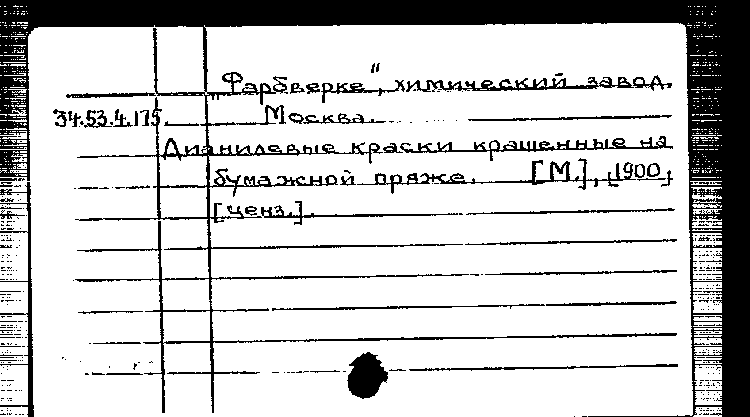 „Фарбверке", химический завод.
34.53.4.175. Москва.
Дианилевые краски крашенные на
бумажной пряже. [М.], [1900]
[ценз.].